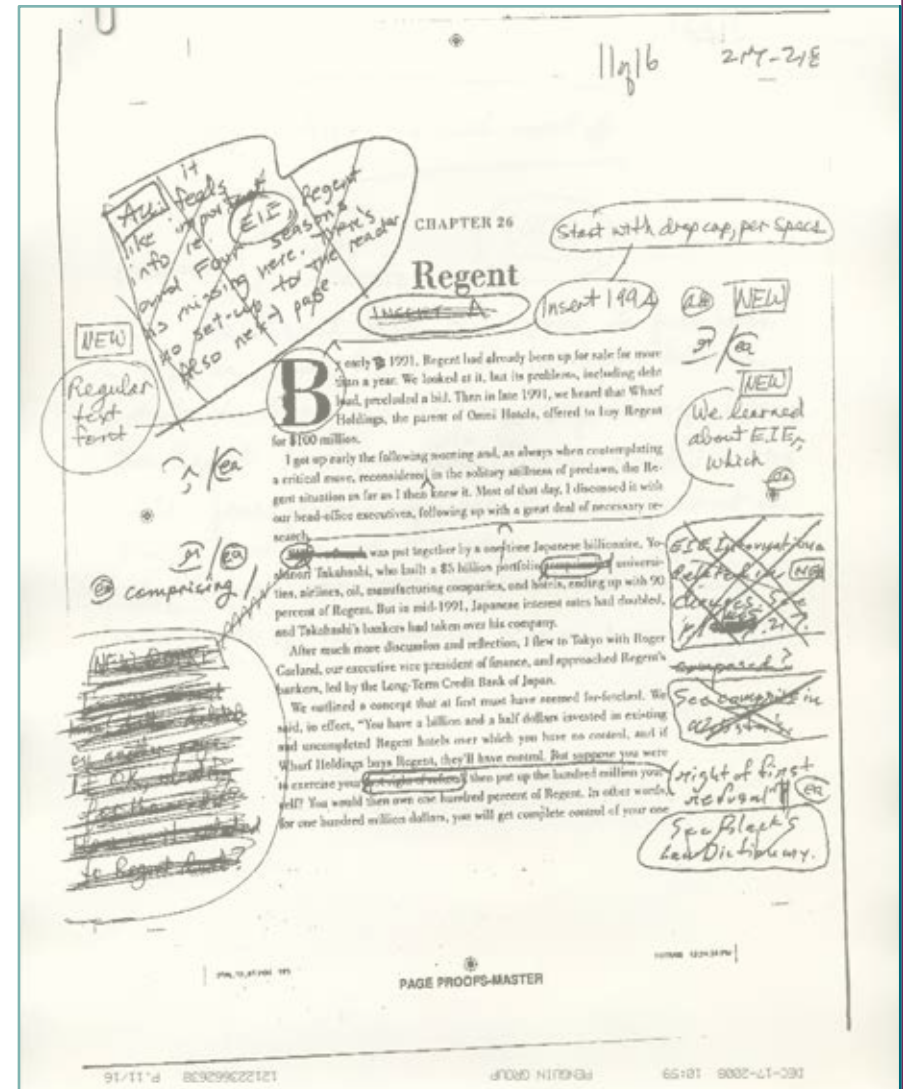 11 of 16
217-218
it
feels
like important
info re. EIE Regent
and Four Seasons
is missing here. There's
no set-up to the reader
Also next page
CHAPTER 26
Start with drop cap, per specs
Regent
INSERT A
Insert 199A
NEW
NEW
Regular
text
font
By early 1991, Regent had already been up for sale for more
than a year. We looked at it, but its problems, including debt
load, precluded a bid. Then in late 1991, we heard that Wharf
Holdings, the parent of Omni Hotels, offered to buy Regent
for $100 million.
NEW
We learned
about EIE,
which
I got up early the following morning and, as always when contemplating
a critical move, reconsidered in the solitary stillness of predawn, the Re-
gent situation as far as I then knew it. Most of that day, I discussed it with
our head-office executives, following up with a great deal of necessary re-
search.
was put together by a onetime Japanese billionaire, Yo-
Takahashi, who built a $5 billion portfolio universi-
ties, airlines, oil, manufacturing companies, and hotels, ending up with 90
percent of Regent. But in mid-1991, Japanese interest rates had doubled,
and Takahashi's bankers had taken over his company.
ea comprising
After much more discussion and reflection, I flew to Tokyo with Roger
Garland, our executive vice president of finance, and approached Regent's
bankers, led by the Long-Term Credit Bank of Japan.
We outlined a concept that at first must have seemed far-fetched. We
said, in effect, "You have a billion and a half dollars invested in existing
and uncompleted Regent hotels over which you have no control, and if
Wharf Holdings buys Regent, they'll have control. But suppose you were
to exercise your first right of refusal, then put up the hundred million your-
self? You would then own one hundred percent of Regent. In other words,
for one hundred million dollars, you will get complete control of your one
EIE
NEW
composed?
See comprise in
right of first
refusal
ea
See Black's
Law Dictionary.
PAGE PROOFS-MASTER
DEC-17-2008 10:59
PENGUIN GROUP
12123662638
P.11/16